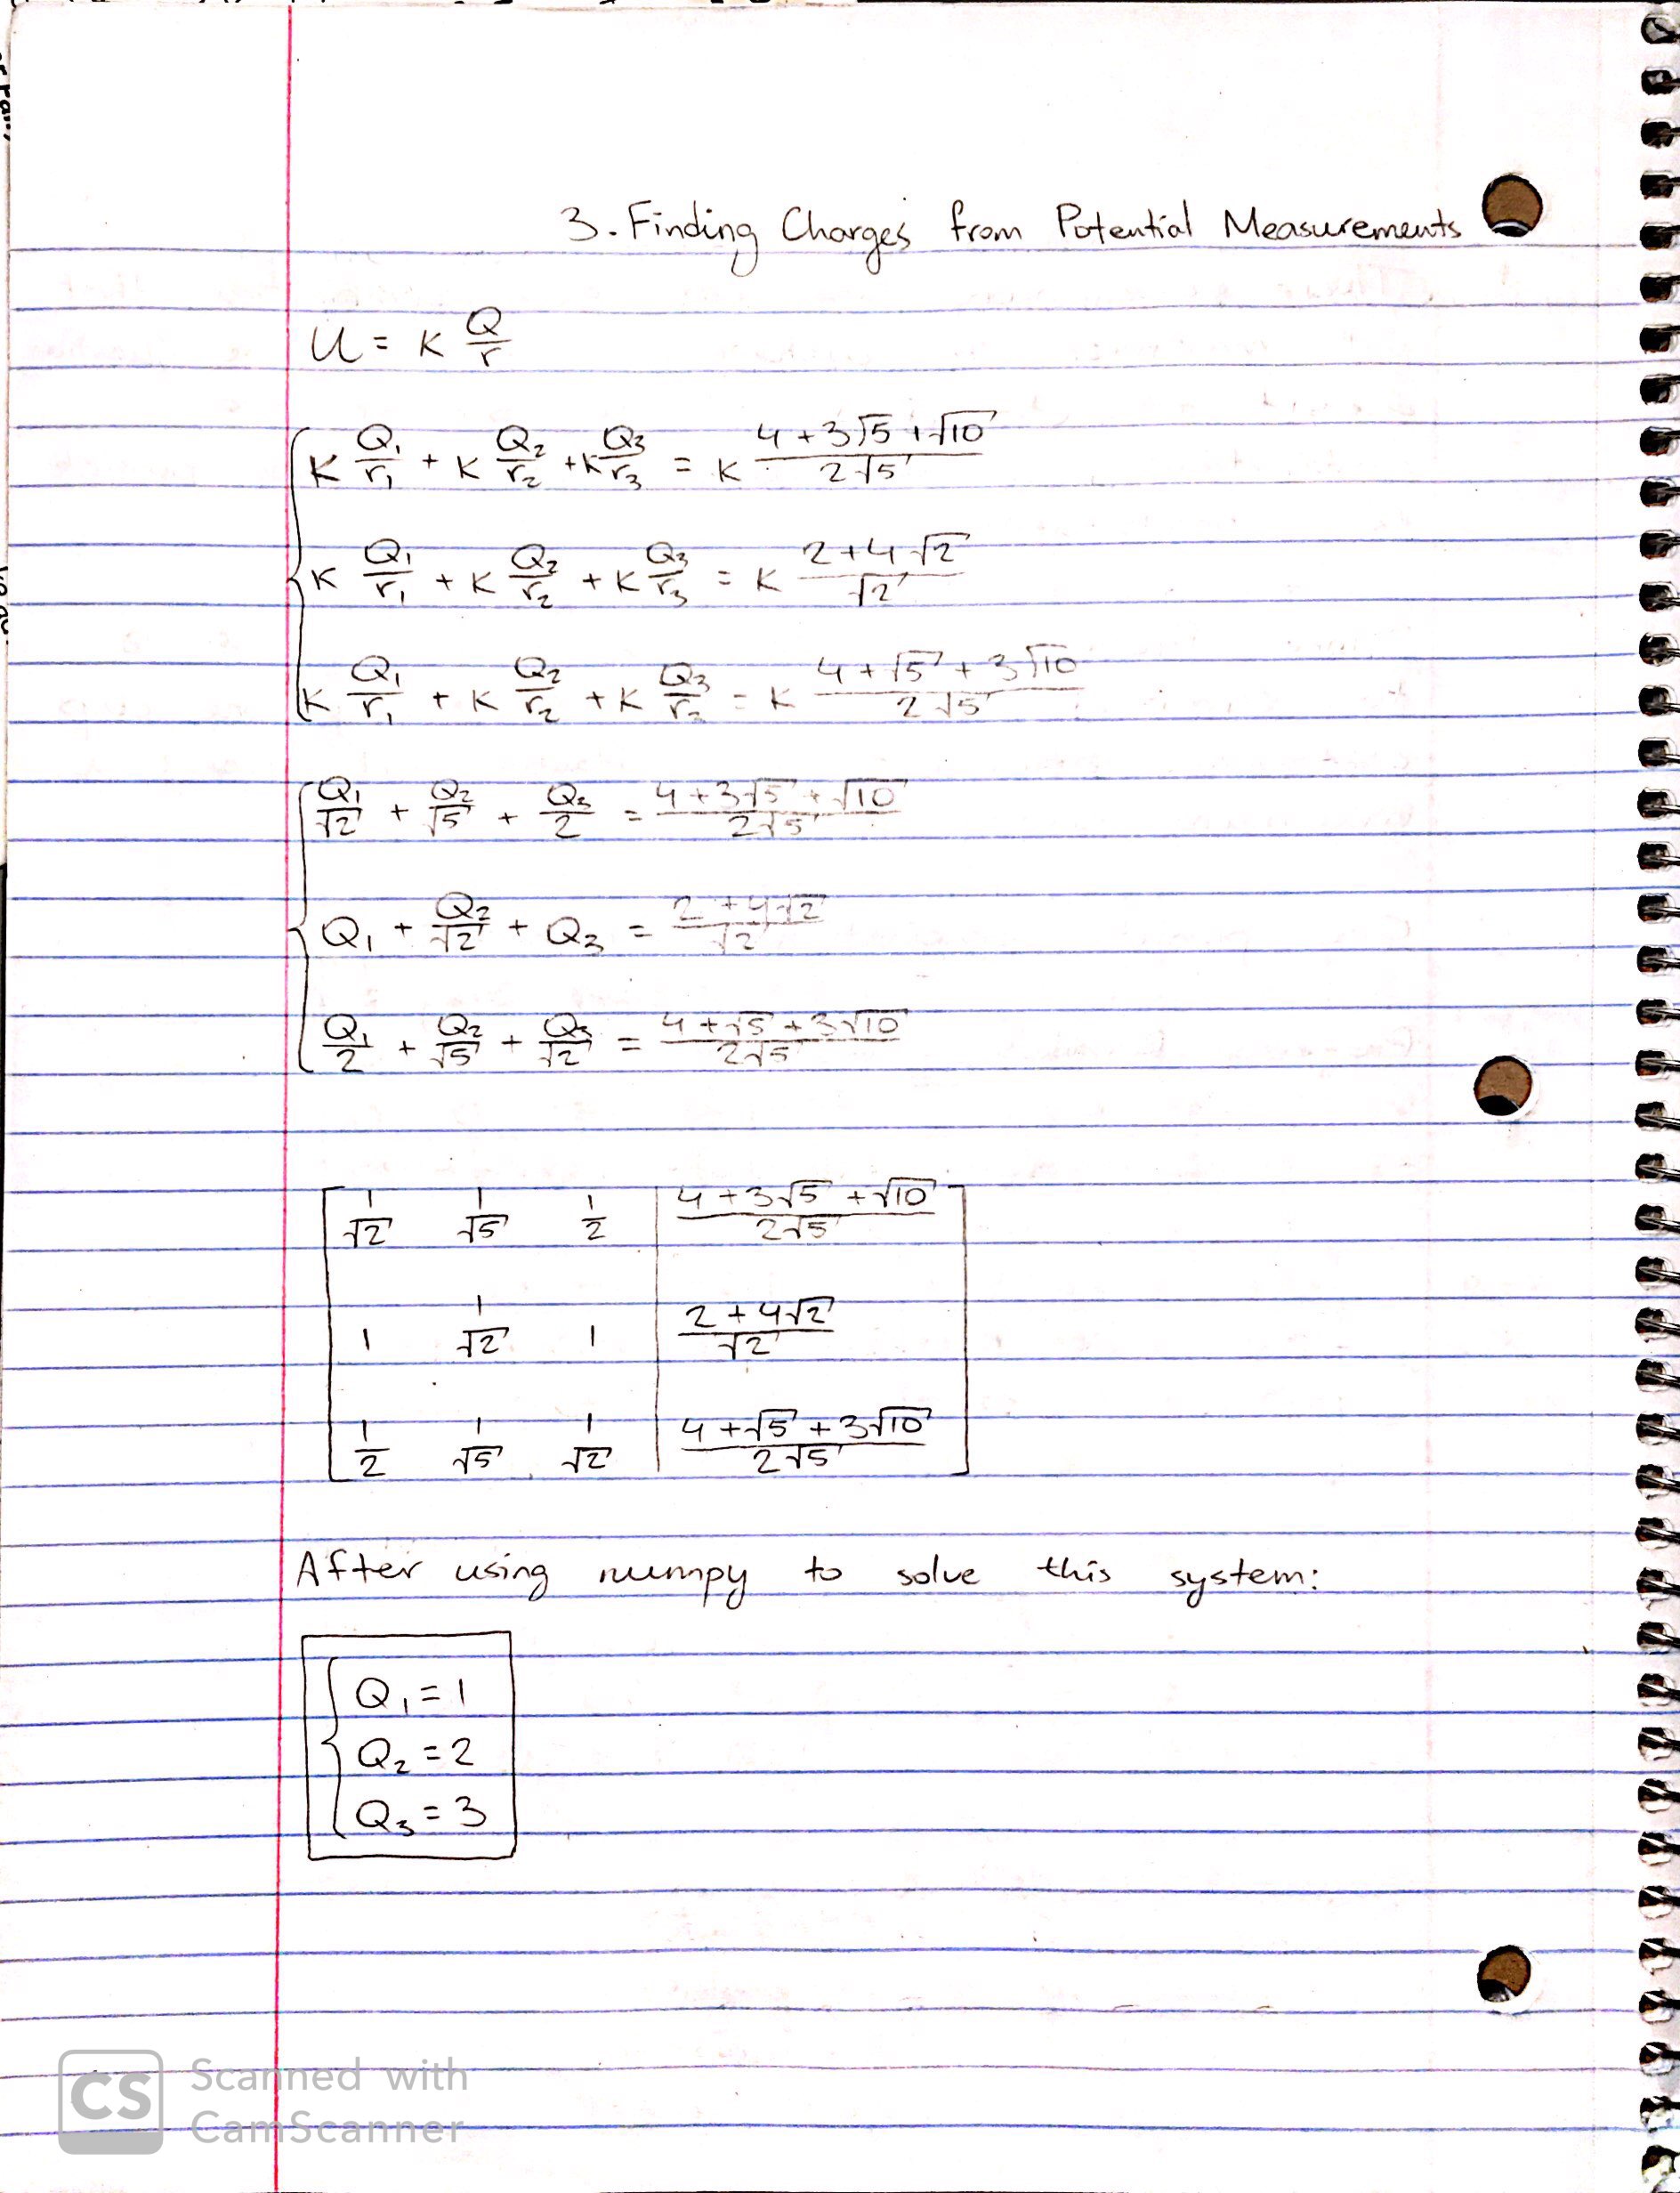 3. Finding Charges from Potential Measurements
U = K Q/r
K Q₁/r₁ + K Q₂/r₂ + K Q₃/r₃ = K (4 + 3√5 + √10)/(2√5)
K Q₁/r₁ + K Q₂/r₂ + K Q₃/r₃ = K (2 + 4√2)/√2
K Q₁/r₁ + K Q₂/r₂ + K Q₃/r₃ = K (4 + √5 + 3√10)/(2√5)
Q₁/√2 + Q₂/√5 + Q₃/2 = (4 + 3√5 + √10)/(2√5)
Q₁ + Q₂/√2 + Q₃ = (2 + 4√2)/√2
Q₁/2 + Q₂/√5 + Q₃/√2 = (4 + √5 + 3√10)/(2√5)
1/√2 1/√5 1/2 | (4 + 3√5 + √10)/(2√5)
1 1/√2 1 | (2 + 4√2)/√2
1/2 1/√5 1/√2 | (4 + √5 + 3√10)/(2√5)
After using numpy to solve this system:
Q₁ = 1
Q₂ = 2
Q₃ = 3
CS Scanned with
CamScanner